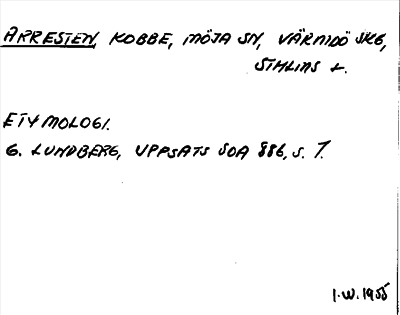 ARRESTEN, KOBBE, MÖJA SN, VÄRMDÖ SKG,
STHLMS L.
ETYMOLOGI.
G. LUNDBERG, UPPSATS SOA 886, S. 7.
I.W. 1955